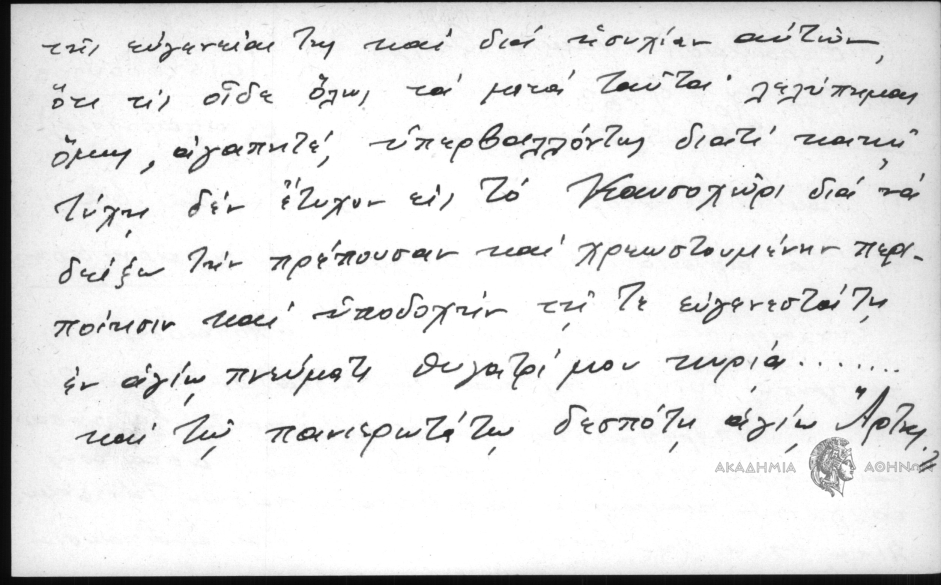 τῆς εὐγενείας της καί διά ἡσυχίαν αὐτῶν,
ὅτι τίς οἶδε ὅλως τά μετά ταῦτα λελύπημαι
ὅμως, ἀγαπητέ, ὑπερβαλλόντως διατί κακῇ
τύχῃ δέν ἔτυχον εἰς τό Καυσοχῶρι διά νά
δείξω τήν πρέπουσαν καί χρεωστουμένην περι-
ποίησιν καί ὑποδοχήν τῇ τε εὐγενεστάτῃ
ἐν ἁγίῳ πνεύματι θυγατρί μου κυρίᾳ........
καί τῷ πανιερωτάτῳ δεσπότῃ ἁγίῳ Ἄρτης.
ΑΚΑΔΗΜΙΑ ΑΘΗΝΩΝ